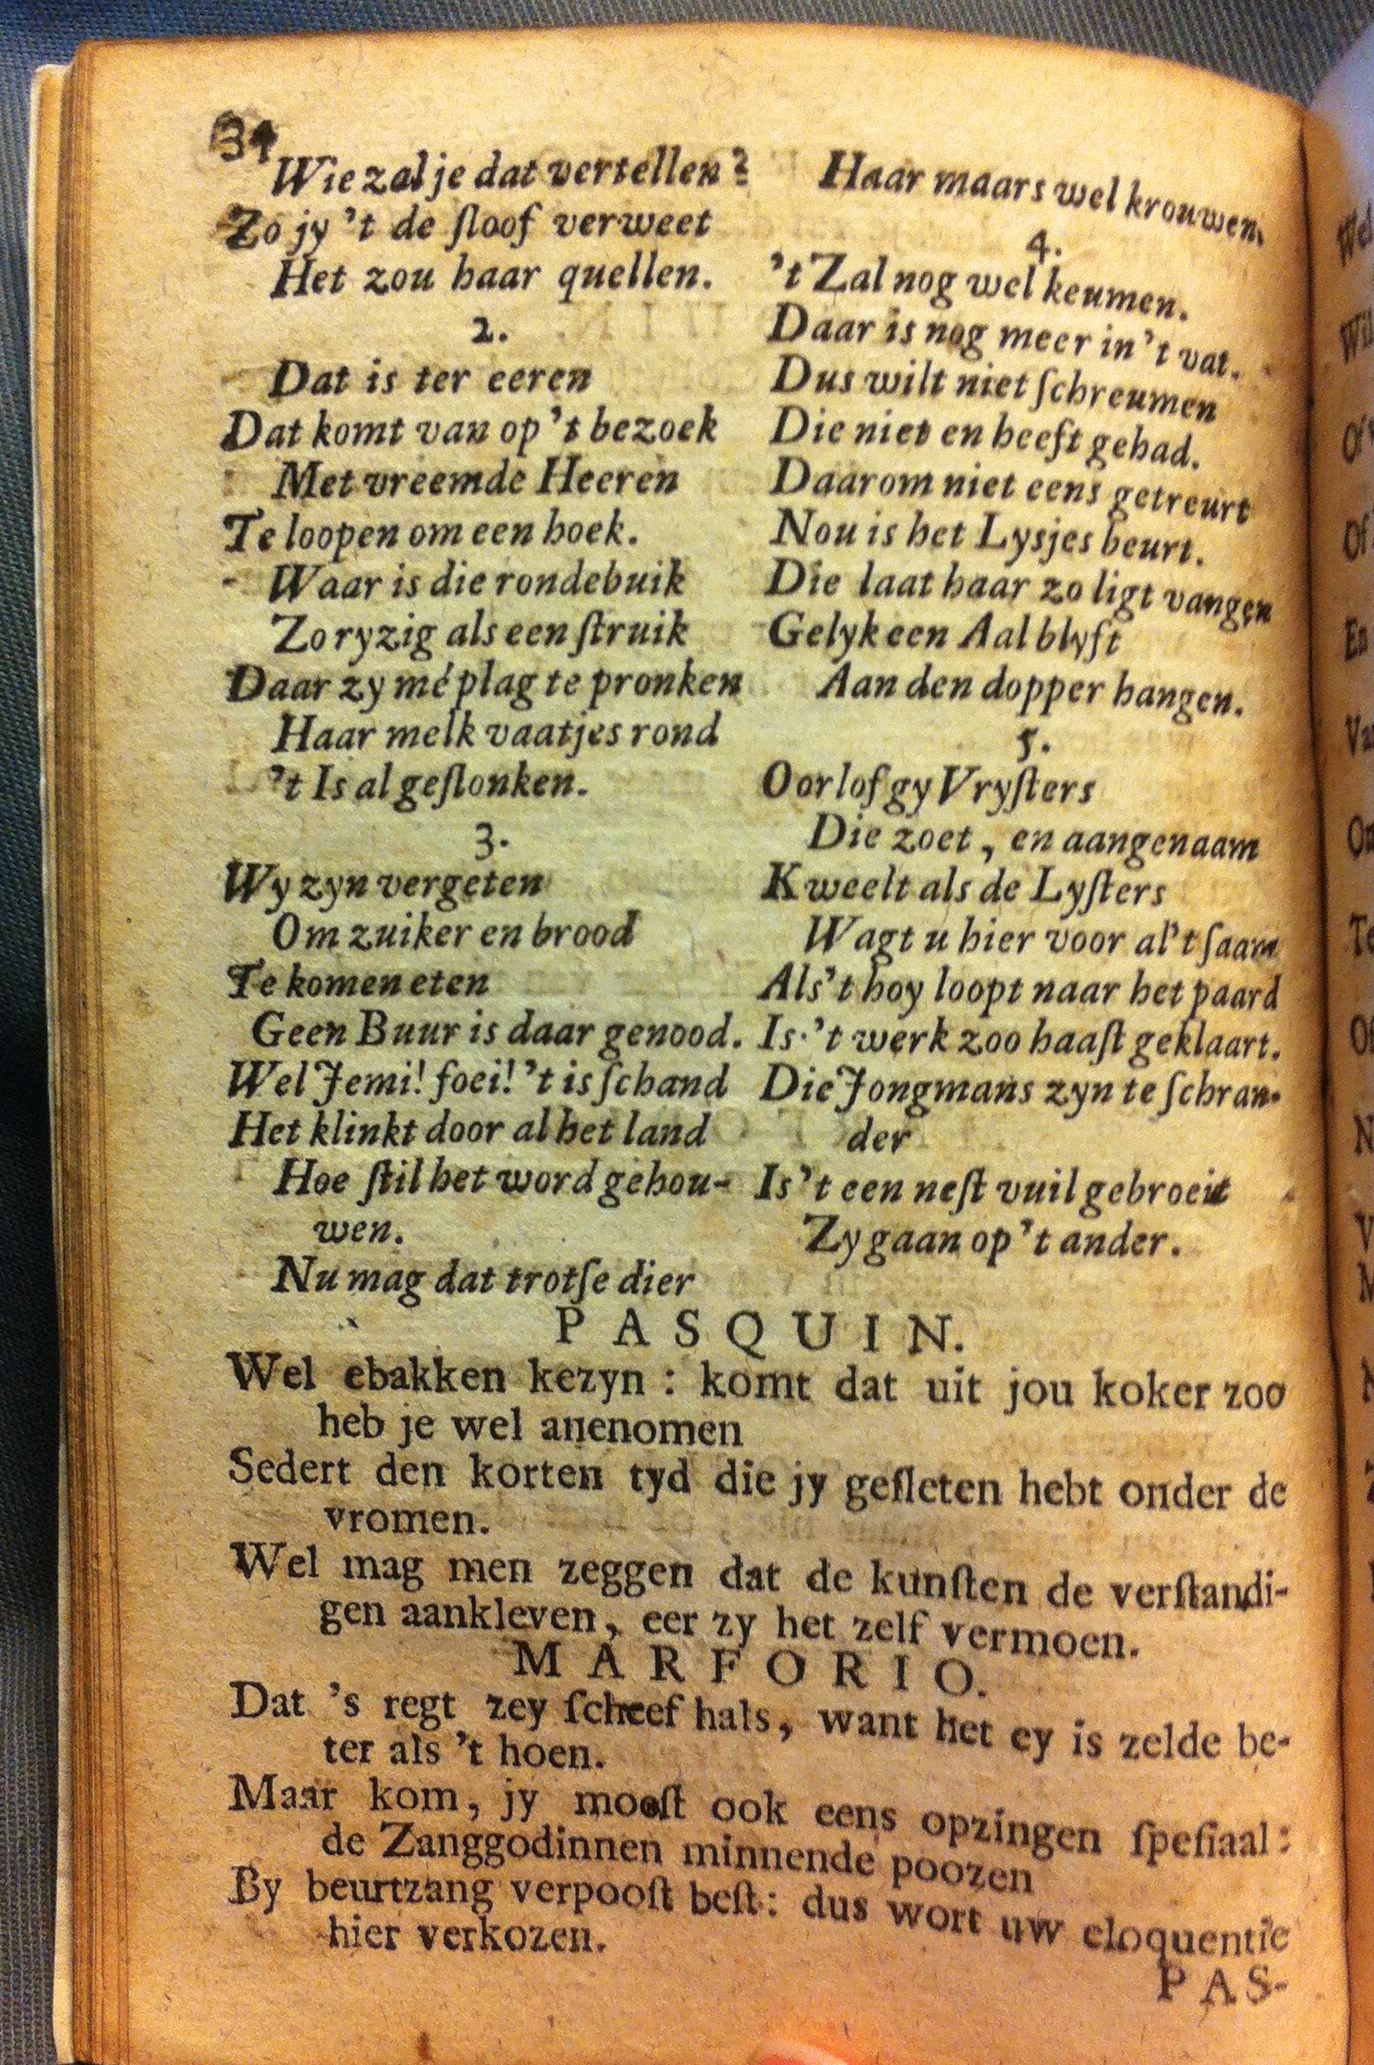 34
Wie zal je dat vertellen?
Zo jy 't de ſloof verweet
Het zou haar quellen.
2.
Dat is ter eeren
Dat komt van op 't bezoek
Met vreemde Heeren
Te loopen om een hoek.
Waar is die rondebuik
Zo ryzig als een ſtruik
Daar zy mé plag te pronken
Haar melk vaatjes rond
't Is al geſlonken.
3.
Wy zyn vergeten
Om zuiker en brood
Te komen eten
Geen Buur is daar genood.
Wel Jemi! foei! 't is ſchand
Het klinkt door al het land
Hoe ſtil het word gehou-
wen.
Nu mag dat trotſe dier
Haar maars wel krouwen.
4.
't Zal nog wel keumen.
Daar is nog meer in 't vat.
Dus wilt niet ſchreumen
Die niet en heeft gehad.
Daarom niet eens getreurt
Nou is het Lysjes beurt.
Die laat haar zo ligt vangen
Gelyk een Aal blyft
Aan den dopper hangen.
5.
Oorlof gy Vryſters
Die zoet, en aangenaam
Kweelt als de Lyſters
Wagt u hier voor al't ſaam
Als't hoy loopt naar het paard
Is 't werk zoo haaſt geklaart.
Die Jongmans zyn te ſchran-
der
Is 't een neſt vuil gebroeit
Zy gaan op 't ander.
PASQUIN.
Wel ebakken kezyn: komt dat uit jou koker zoo
heb je wel anenomen
Sedert den korten tyd die jy geſleten hebt onder de
vromen.
Wel mag men zeggen dat de kunſten de verſtandi-
gen aankleven, eer zy het zelf vermoen.
MARFORIO.
Dat 's regt zey ſcheef hals, want het ey is zelde be-
ter als 't hoen.
Maar kom, jy mooſt ook eens opzingen ſpeſiaal:
de Zanggodinnen minnende poozen
By beurtzang verpooſt beſt: dus wort uw eloquentie
hier verkozen.
PAS-